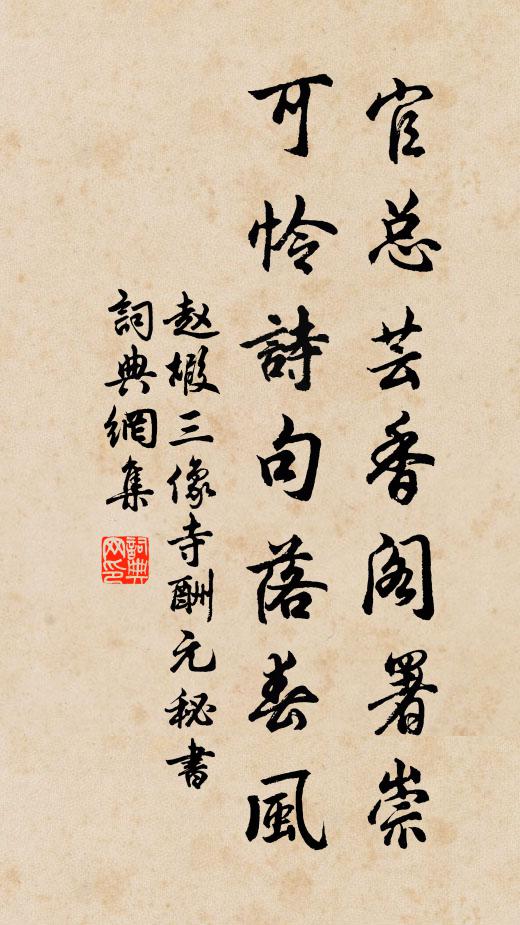 官总芸香阁署崇
可怜詩句落春風
赵嘏三像寺酬元秘書
詞典網集
詞典网印